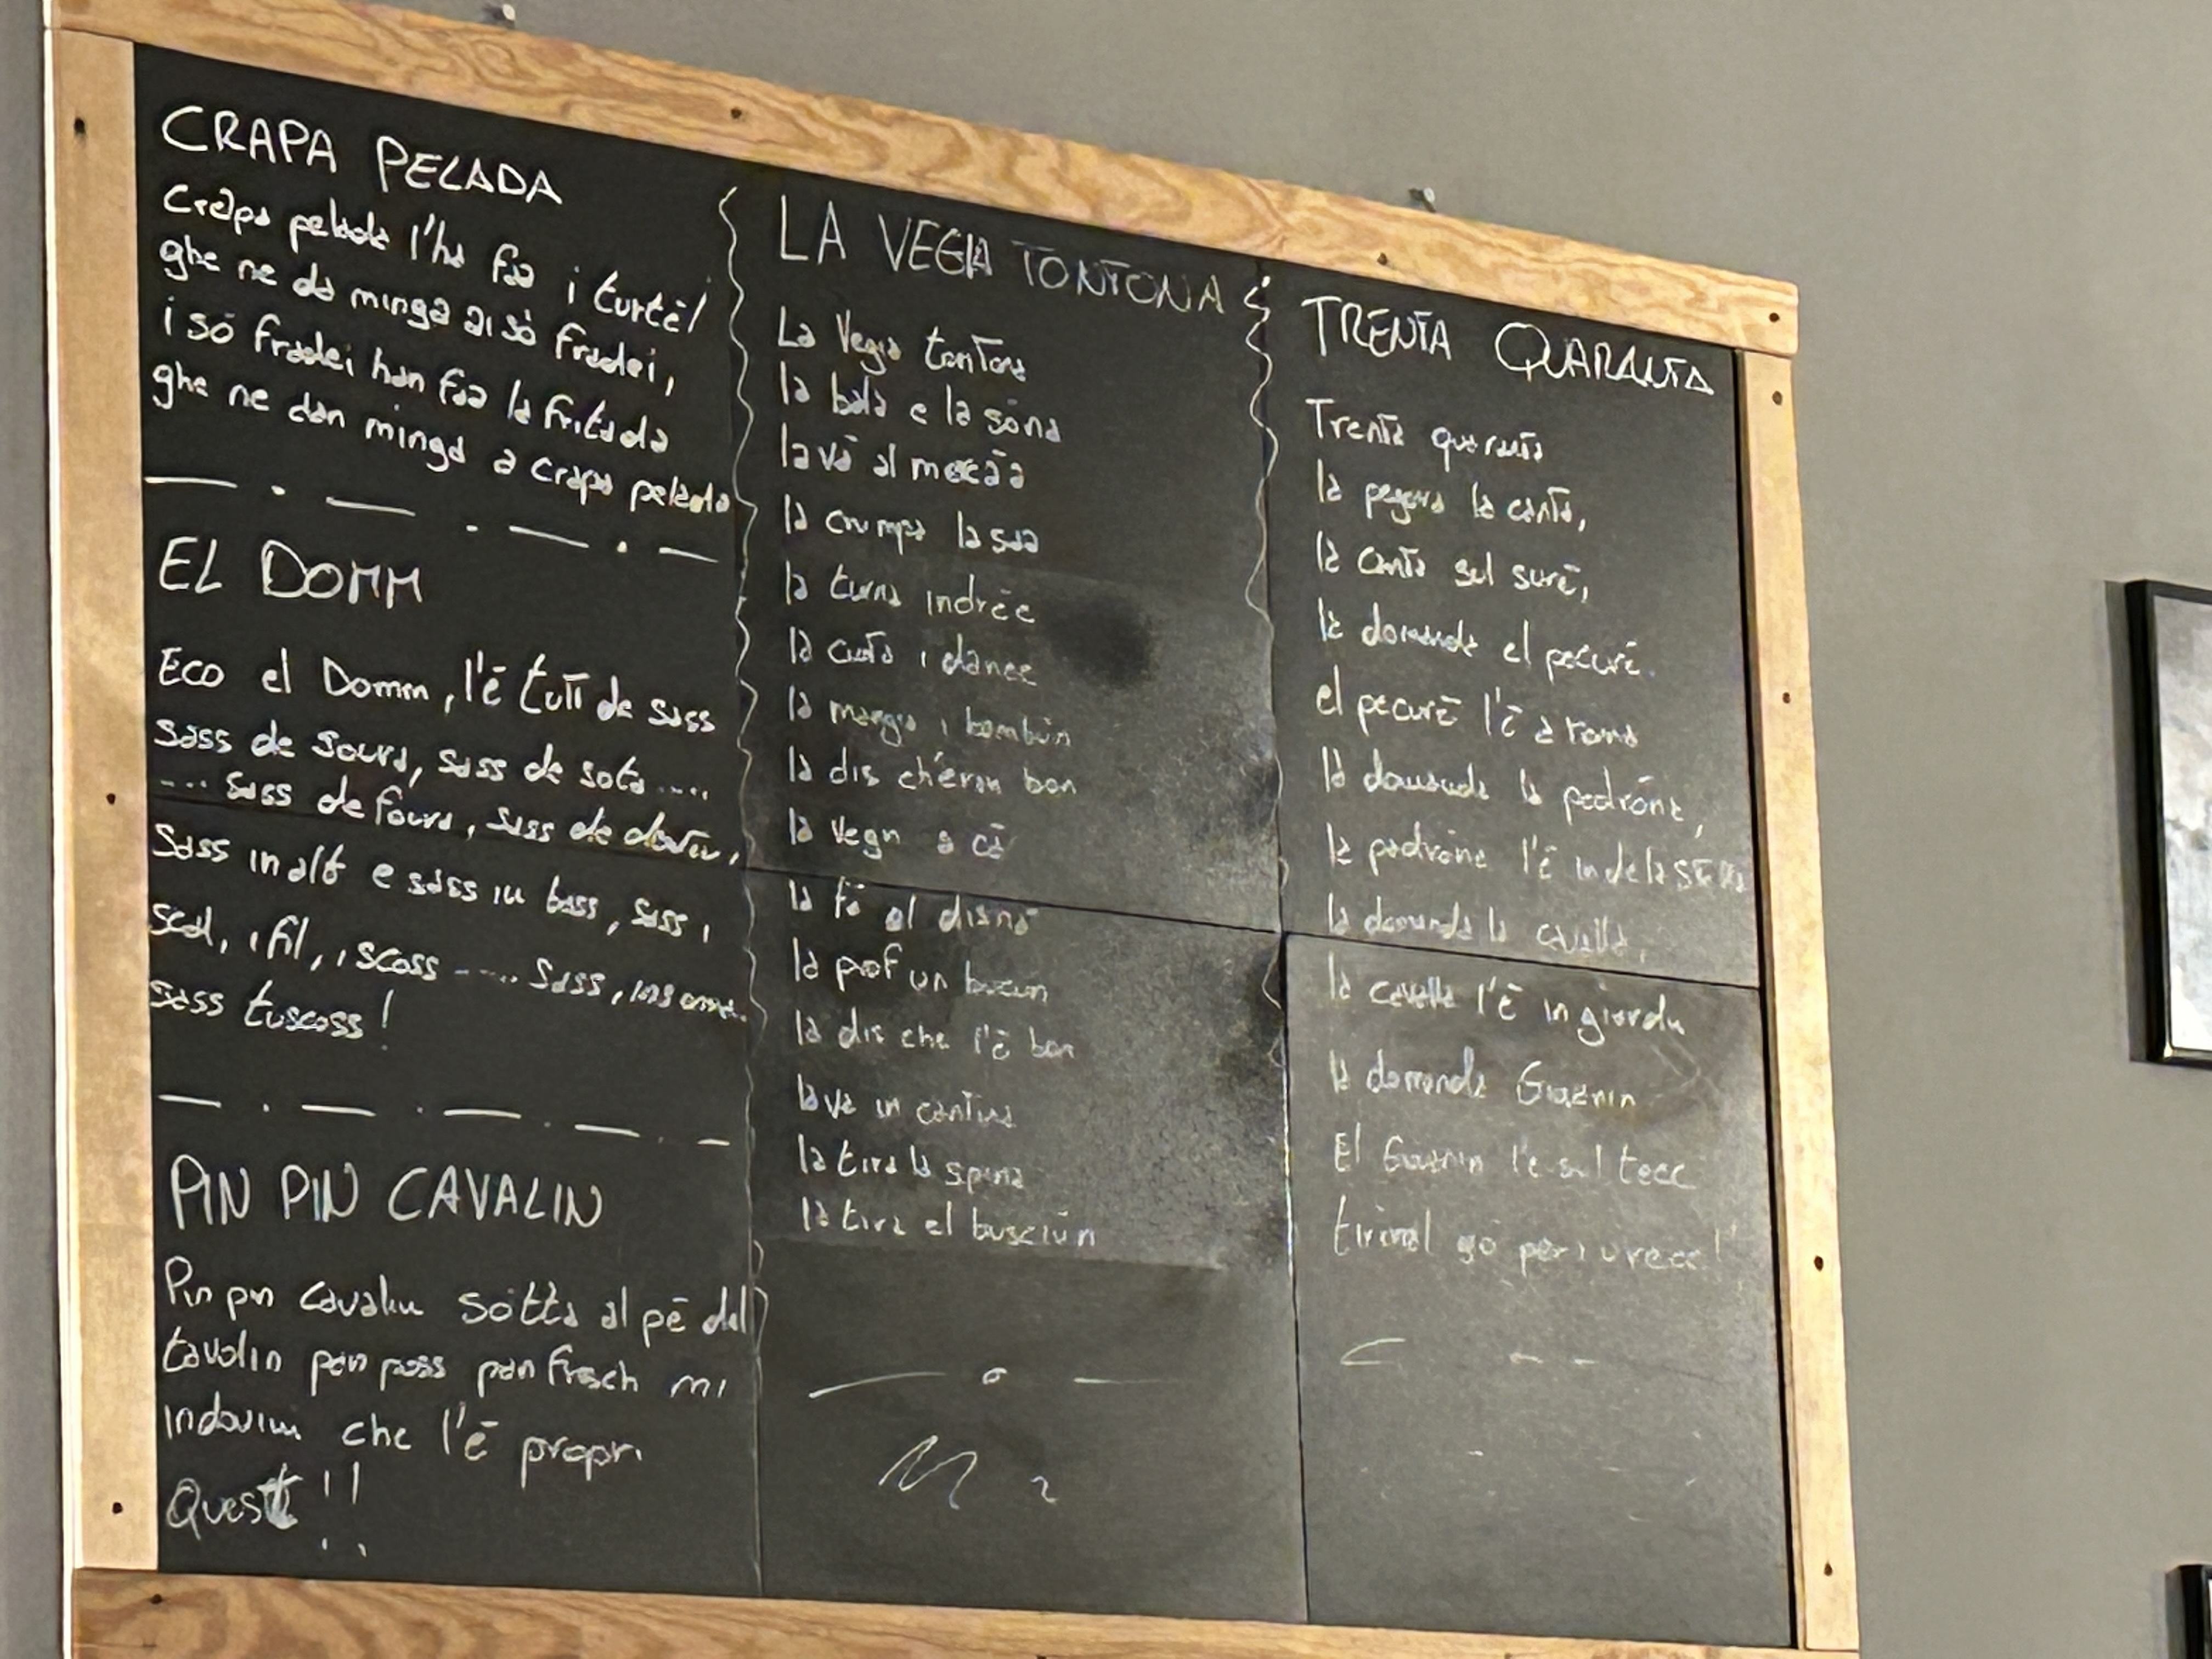 CRAPA PELADA
Crapa pelada l'ha faa i turtèl
ghe ne da minga ai sò fradei,
i sò fradei han faa la fritada
ghe ne dan minga a crapa pelada
EL DOMM
Eco el Domm, l'è tutt de sass
sass de soura, sass de sota ....
... sass de foura, sass de denter,
sass in alt e sass in bass, sass i
scal, i fil, i scoss ..... sass,
sass tuscoss!
PIN PIN CAVALIN
Pin pin cavalin sòtta al pè del
tavolin pan poss pan fresch mi
indovini che l'è propri
Quest!!
LA VEGIA TONTONA
La Vegia tontona
la bala e la sona
la va al mercaa
la crumpa la saa
la turna indrèe
la cunta i danee
la mangia i bombùn
la dis ch'eran bon
la vegn a cà
la fà al disnà
la prof un bucun
la dis che l'è bon
la va in cantina
la tira la spina
la tira el busciùn
TRENTA QUARANTA
Trenta quaranta
la pegora la canta,
la canta sul surè,
la domanda el pecurè.
el pecurè l'è a roma
la domanda la padrona,
la padrona l'è in de la stalla
la domanda la cavalla,
la cavalla l'è in giardin
la domanda Giuanin
El Giuanin l'è sul tecc
tirimal gò per i urecc!